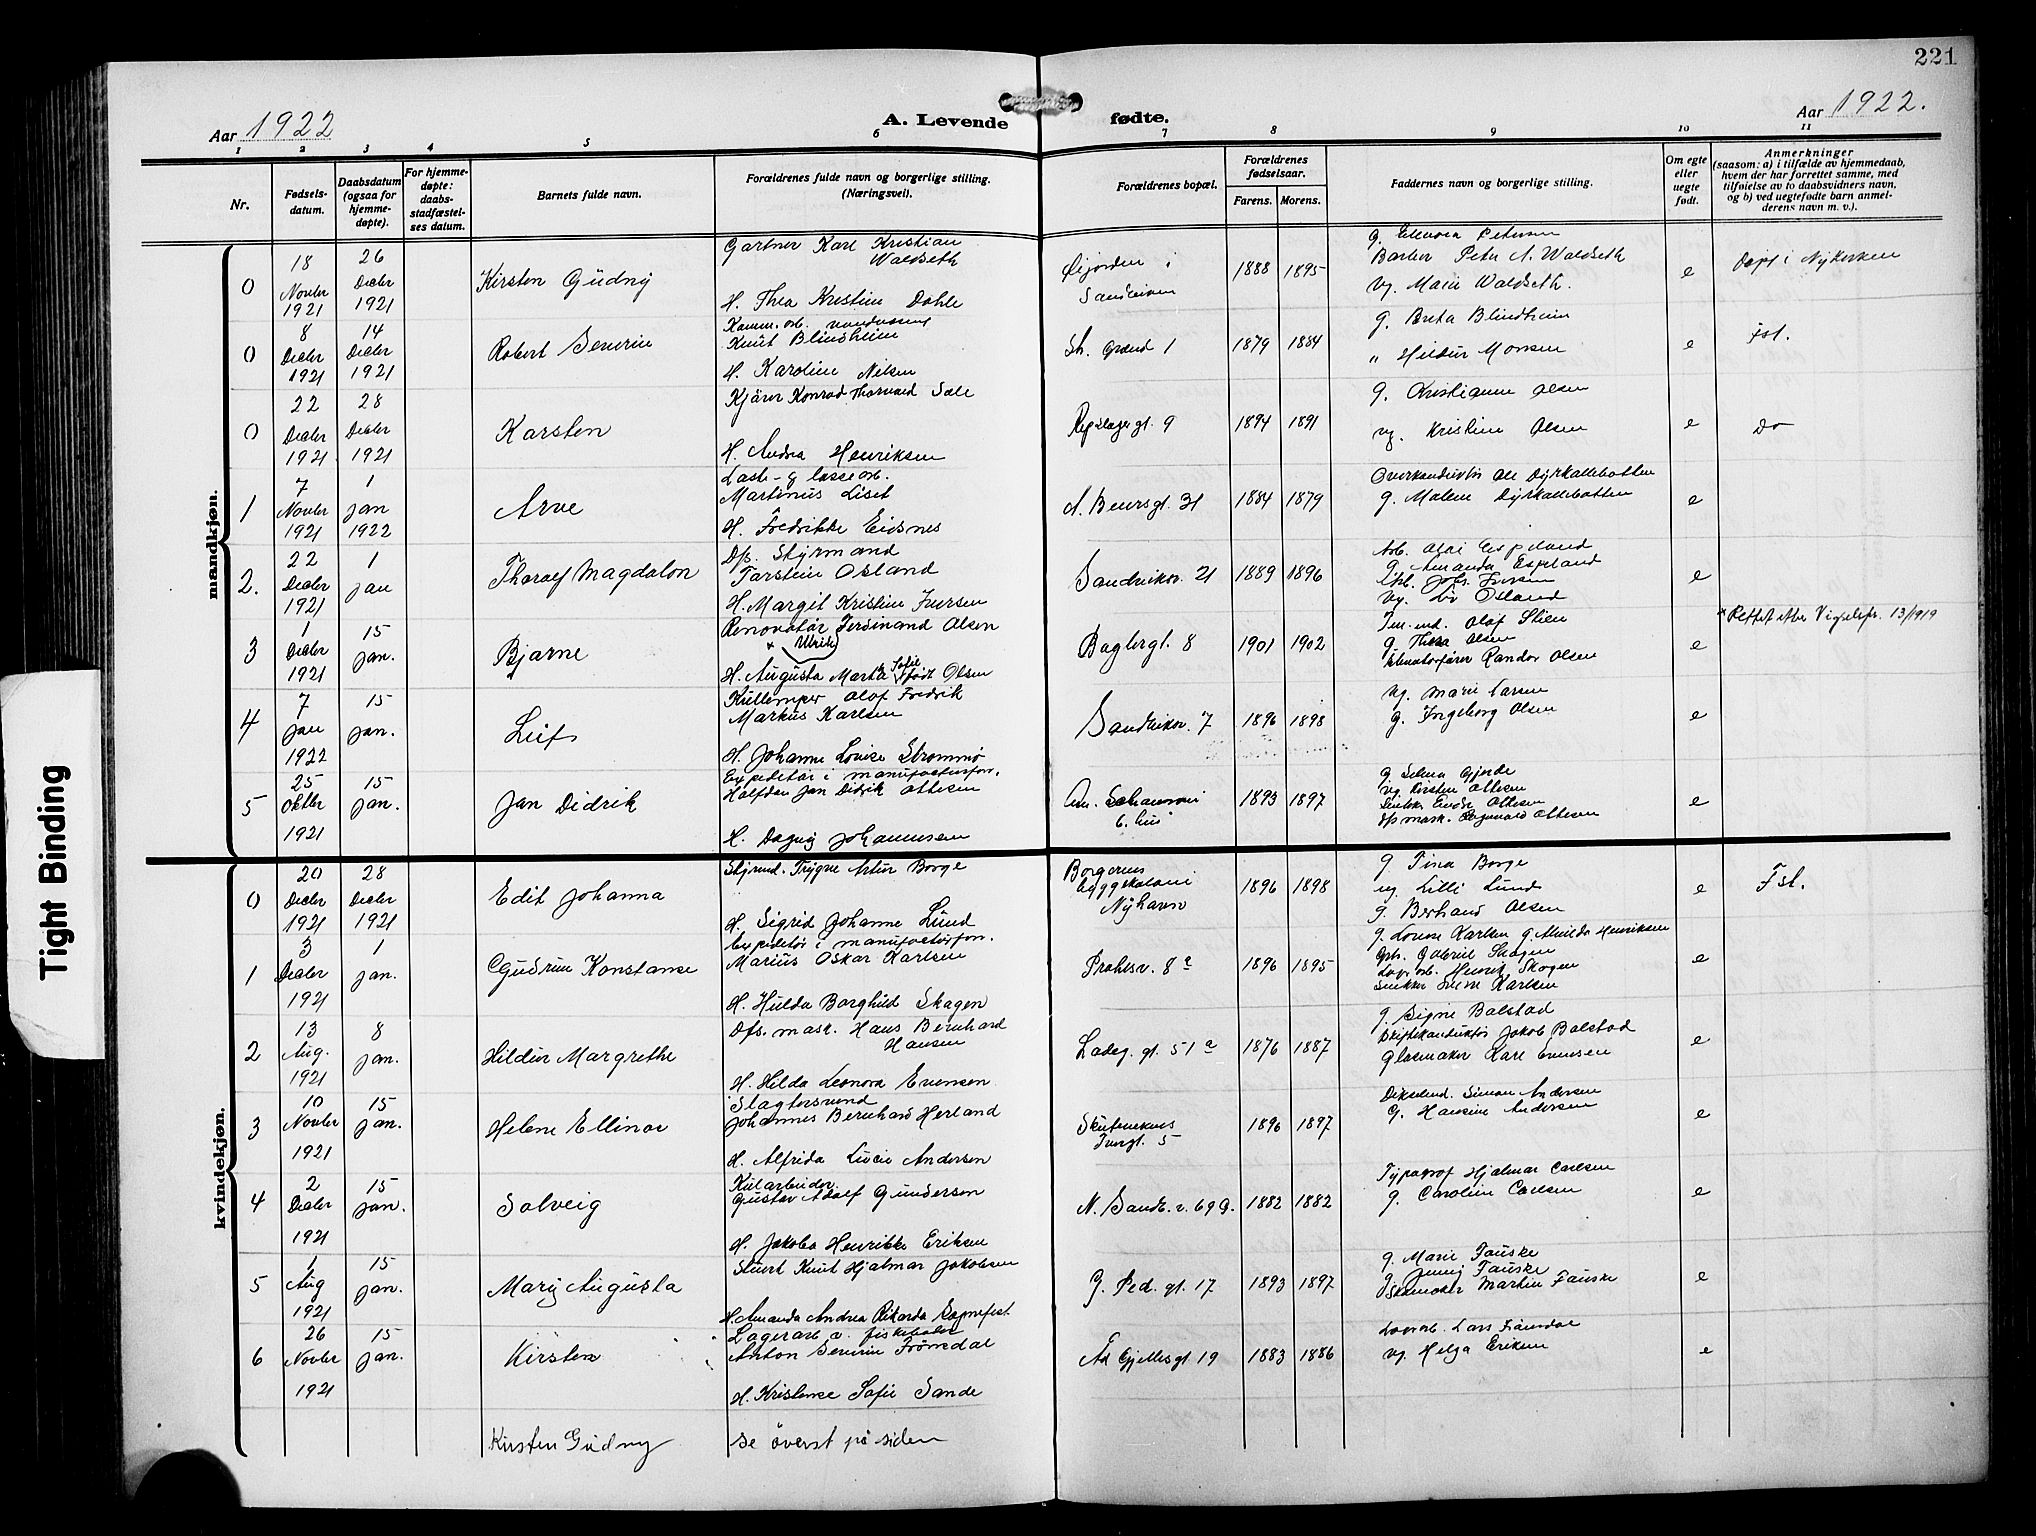 221
Aar 1922
A. Levende fødte.
Aar 1922.
1 2 3 4 5 6 7 8 9 10 11
Nr.
Fødsels-
datum.
Daabsdatum
(ogsaa for
hjemme-
døpte).
For hjemme-
døpte:
daabs-
stadfæstel-
ses datum.
Barnets fulde navn.
Forældrenes fulde navn og borgerlige stilling.
(Næringsvei).
Forældrenes bopæl.
Forældrenes
fødselsaar.
Farens. Morens.
Faddernes navn og borgerlige stilling.
Om egte
eller
uegte
født.
Anmerkninger
(saasom: a) i tilfælde av hjemmedaab,
hvem der har forrettet samme, med
tilføielse av to daabsvidners navn,
og b) ved uegtefødte barn anmel-
derens navn m. v.).
mandkjøn.
0
18
Novbr
1921
26
Decbr
1921
Kirsten Gudny
Gartner Karl Kristian
Waldseth
H. Thea Kristine Dahle
i
Sandviken
1888 1895
g. Petersen
Barber Peter A. Waldseth
vg. Marie Waldseth.
e
Døpt i Nykirken
0
8
Decbr
1921
14
Decbr
1921
Robert Severin
Knut Blindheim
H. Karoline Nilsen
St. Grænd 1
1879 1884
g. Berta Blindheim
„ Hildur Monsen
e
Fst.
0
22
Decbr
1921
28
Decbr
1921
Karsten
Kjører Konrad Thorvald Sæle
H. Andrea Henriksen
Repslagergt. 9
1894 1891
g. Kristianne Olsen
vg. Kristine Olsen
e
Do
1
7
Novbr
1921
1
jan
1922
Arve
Laste- g lossearb.
Martinus Liset
H. Fredrikke Eidsnes
A. Beursgt. 31
1884 1879
Overkonduktør Ole Dyrkollebotten
g. Malene Dyrkollebotten
e
2.
22
Decbr
1921
1
jan
Thoralf Magdalon
Dfs. Styrmand
Torstein Osland
H. Margit Kristine Iversen
Sandviksv. 21
1889 1896
Arb. Olai Espeland
g. Amanda Espeland
Joh. Iversen
vg. Liv Osland
e
3
1
Decbr
1921
15
jan.
Bjarne
Renovatør Ferdinand Olsen
× Ulrikke
H. Augusta Marta Sofie født Olsen
Baglergt. 8
1901 1902
Olaf Stien
g. Thea Olsen
Randor Olsen
e
× Rettet efter Vigselspr. 13/1919
4
7
jan
1922
15
jan.
Leif
Kullemper Olaf Fredrik
Markus Karlsen
H. Johanne Lovise Strømmø
Sandviksv. 7
1896 1898
vg. Marie Larsen
g. Ingeborg Olsen
e
5
25
Oktbr
1921
15
jan.
Jan Didrik
Expeditør i manufacturfor.
Halfdan Jan Didrik Ottesen
H. Dagny Johannesen
6. hus
1893 1897
g. Selma Gjerde
vg. Kirsten Ottesen
Ottesen
Ottesen
e
kvindekjøn.
0
20
Decbr
1921
28
Decbr
1921
Edit Johanna
Styrmd. Trygve Artur Borge
H. Sigrid Johanne Lund
Borgernes
Byggekoloni
Nyhavn
1896 1898
g. Tina Borge
vg. Lilli Lund
g. Berhard Olsen
e
Fst.
1
3
Decbr
1921
1
jan.
Gudrun Konstanse
Expeditør i manufacturfor.
Marius Oskar Karlsen
H. Hulda Borghild Skagen
Prahlsv. 8a
1896 1895
g. Lovise Karlsen g. Alvilda Henriksen
Gabriel Skagen
Henrik Skagen
Karlsen
e
2
13
Aug.
1921
8
jan.
Hildur Margrethe
Dfs. mask. Hans Bernhard
Hansen
H. Hilda Leonora Evensen
Ladeg. gt. 51a
1876 1887
g. Signe Bolstad
Driftskonduktør Jakob Bolstad
Glasmaker Karl Evensen
e
3
10
Novbr
1921
15
jan.
Helene Ellinor
Slagtersvend
Johannes Bernhard Herland
H. Alfrida Lucie Andersen
Skuteviksens
5
1896 1897
Simon Andersen
g. Hansine Andersen
e
4
2
Decbr
1921
15
jan.
Solveig
Kularbeider
Gustav Adolf Gundersen
H. Jakoba Henrikke Eriksen
N. Sandv. v. 69 G.
1882 1882
Typograf Hjalmar Carlsen
g. Caroline Carlsen
e
5
1
Aug
1921
15
jan.
Mary Augusta
Stuert Knut Hjalmar Jakobsen
H. Amanda Andrea Rikarda Sognefest
G. Ped. gt. 17
1893 1897
g. Marie Fauske
g. Jenny Fauske
Skomaker Martin Fauske
e
6
26
Novbr
1921
15
jan.
Kirsten
Anton Severin Frömdal
H. Kristense Sofie Sande
Ad Gjellesgt. 19
1883 1886
Lars Främdal
vg. Helga Eriksen
e
Kirsten Gudny se överst på siden
Tight Binding